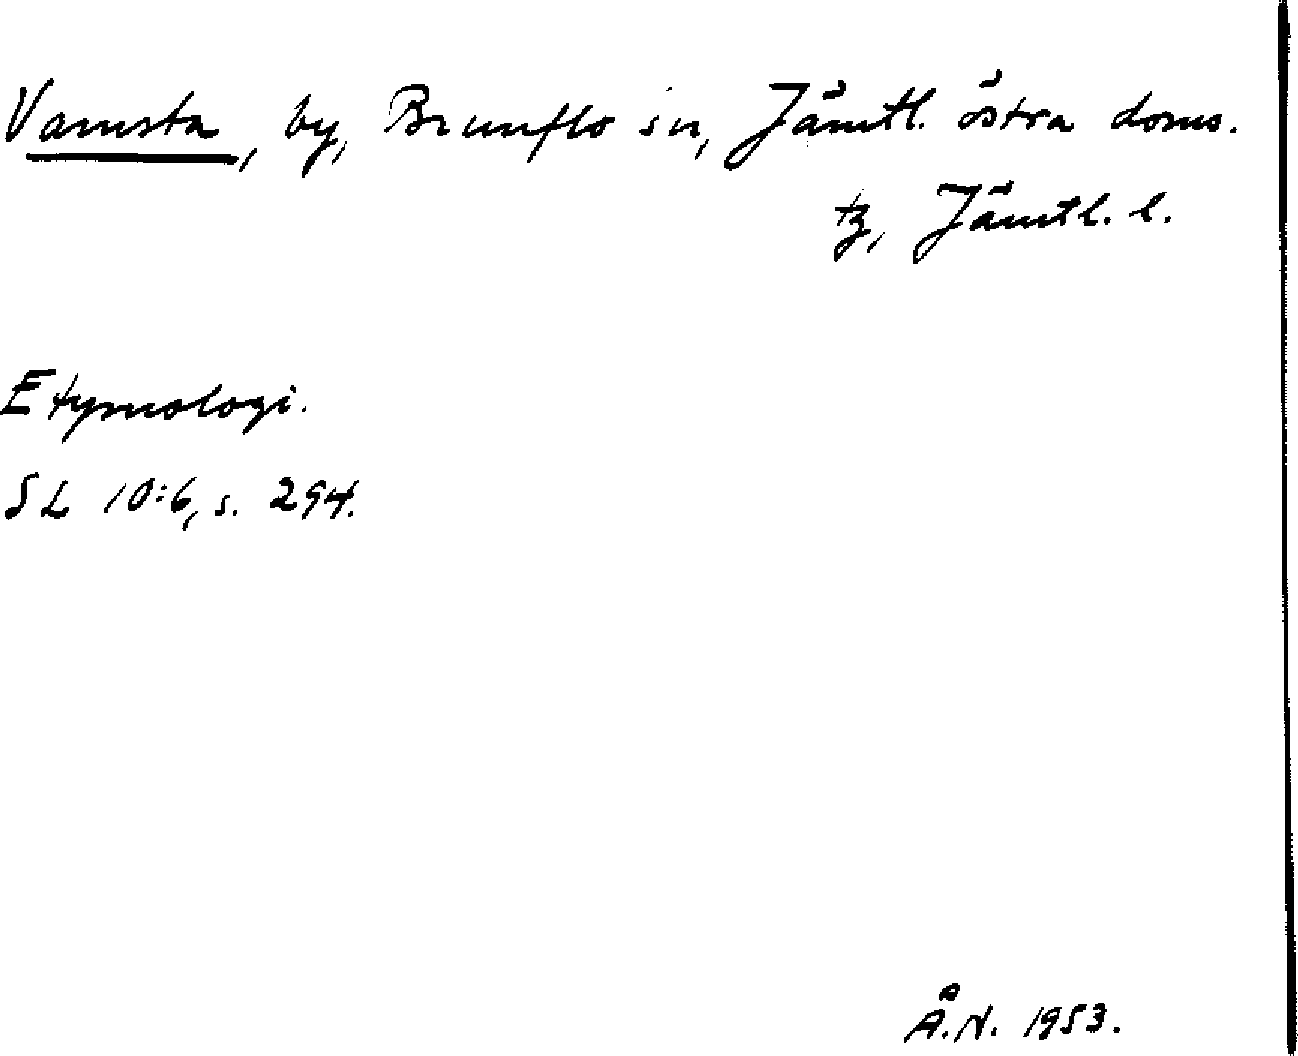 Vamsta, by, Brunflo sn, Jämtl. östra doms.
tg, Jämtl. l.
Etymologi.
SL 10:6, s. 294.
Å.N. 1953.